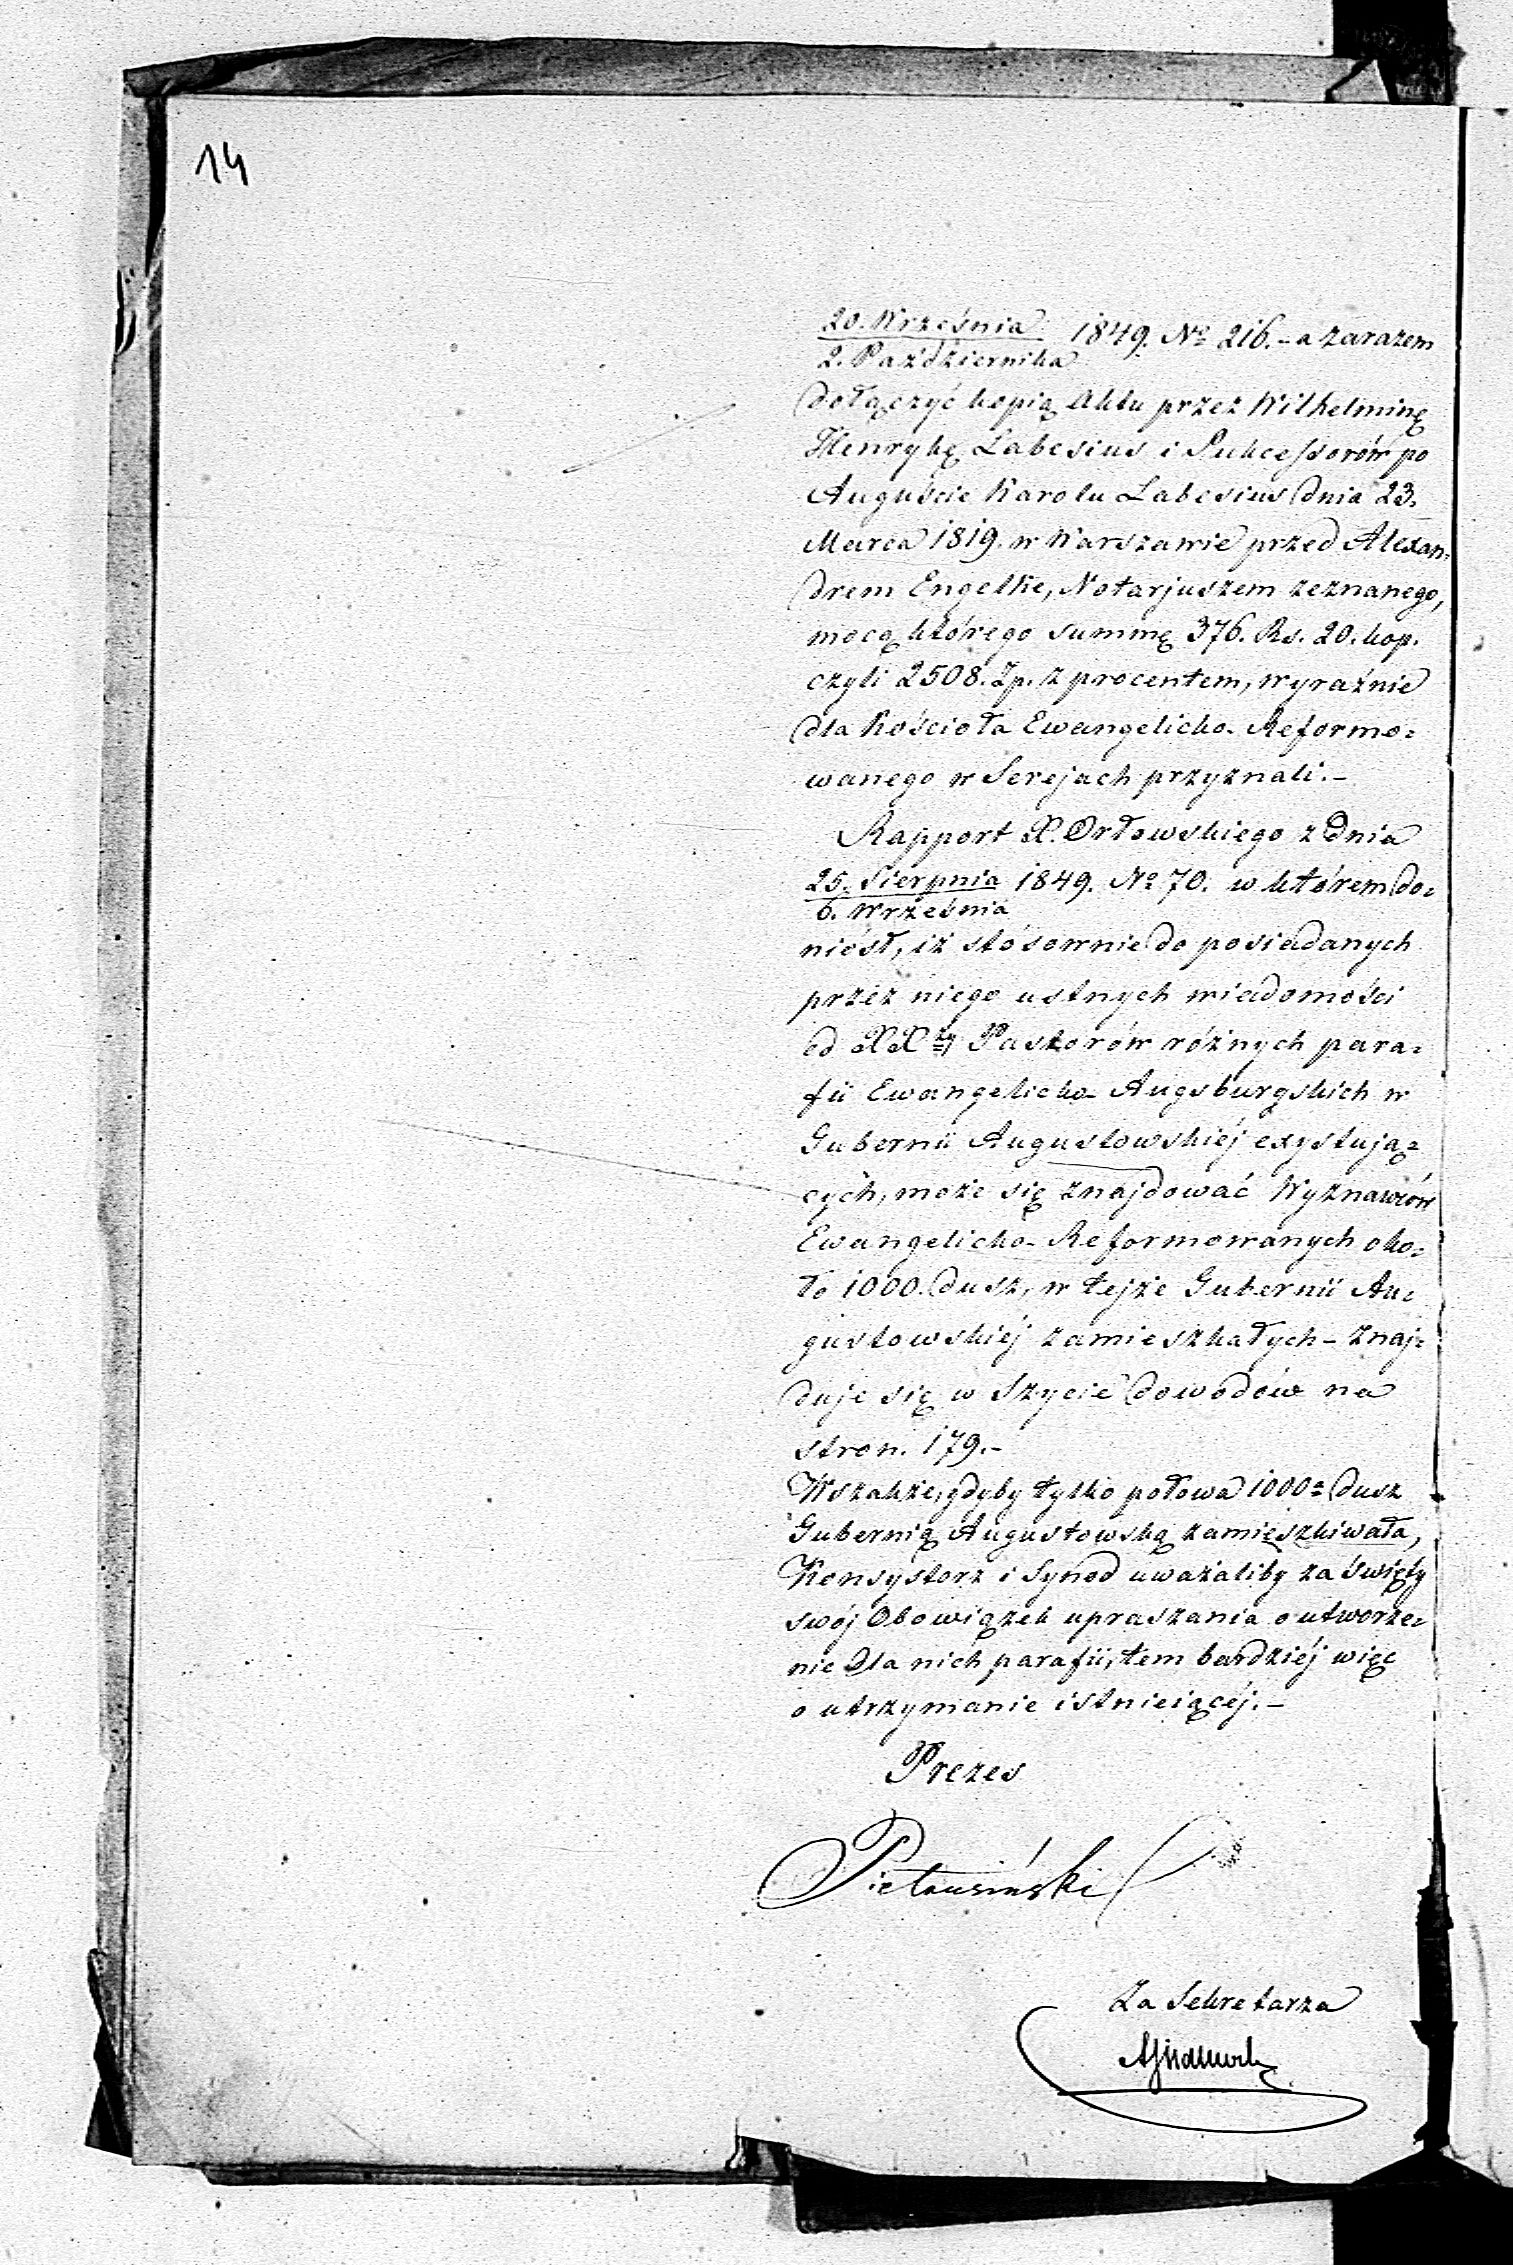 14
20. Września 1849. No 216. - a zarazem
2. Października
dołączyć kopią Aktu przez Wilhelminę
Henrykę Labesius i Sukcessorów po
Auguście Karolu Labesius dnia 23.
Marca 1819. w Warszawie przed Alexan-
drem Engelke, Notarjuszem zeznanego,
mocą którego summę 376. Rs. 20. kop.
czyli 2508. Zp. z procentem, wyraźnie
dla Kościoła Ewangelicko-Reformo-
wanego w Serejach przyznali. -
Rapport X. Orłowskiego z dnia
25. Sierpnia 1849. No 70. w którem do-
6. Września
niósł, iż stósownie do posiadanych
przez niego ustnych wiadomości
od XXży Pastorów różnych para-
fii Ewangelicko-Augsburgskich w
Gubernii Augustowskiéj exystują-
cych, może się znajdować Wyznawców
Ewangelicko-Reformowanych oko-
ło 1000. dusz, w tejże Gubernii Au-
gustowskiéj zamieszkałych - znaj-
duje się w Szycie dowodów na
stron. 179. -
Wszakże, gdyby tylko połowa 1000= dusz
Gubernią Augustowską zamięszkiwała,
Konsystorz i Synod uważaliby za święty
swój Obowiązek upraszania o utworze-
nie dla nich parafii, tem bardziéj więc
o utrzymanie istnieiącéj. -
Prezes
Pietrusiński
Za Sekretarza